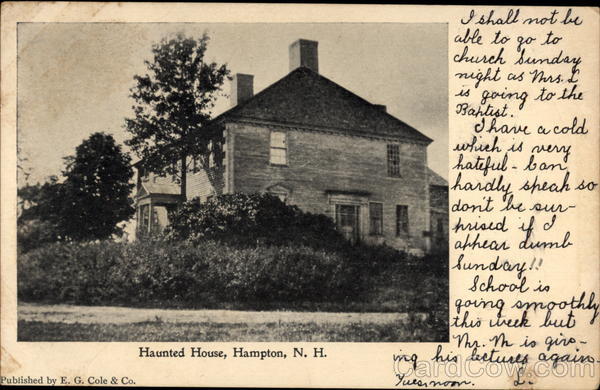 I shall not be
able to go to
church Sunday
night as Mrs. L
is going to the
Baptist.
I have a cold
which is very
hateful - Can
hardly speak so
don't be sur-
prised if I
appear dumb
Sunday!!
School is
going smoothly
this week but
Mr. M is giv-
ing his lectures again.
Tues. noon. L.
Haunted House, Hampton, N. H.
Published by E. G. Cole & Co.
CardCow.com